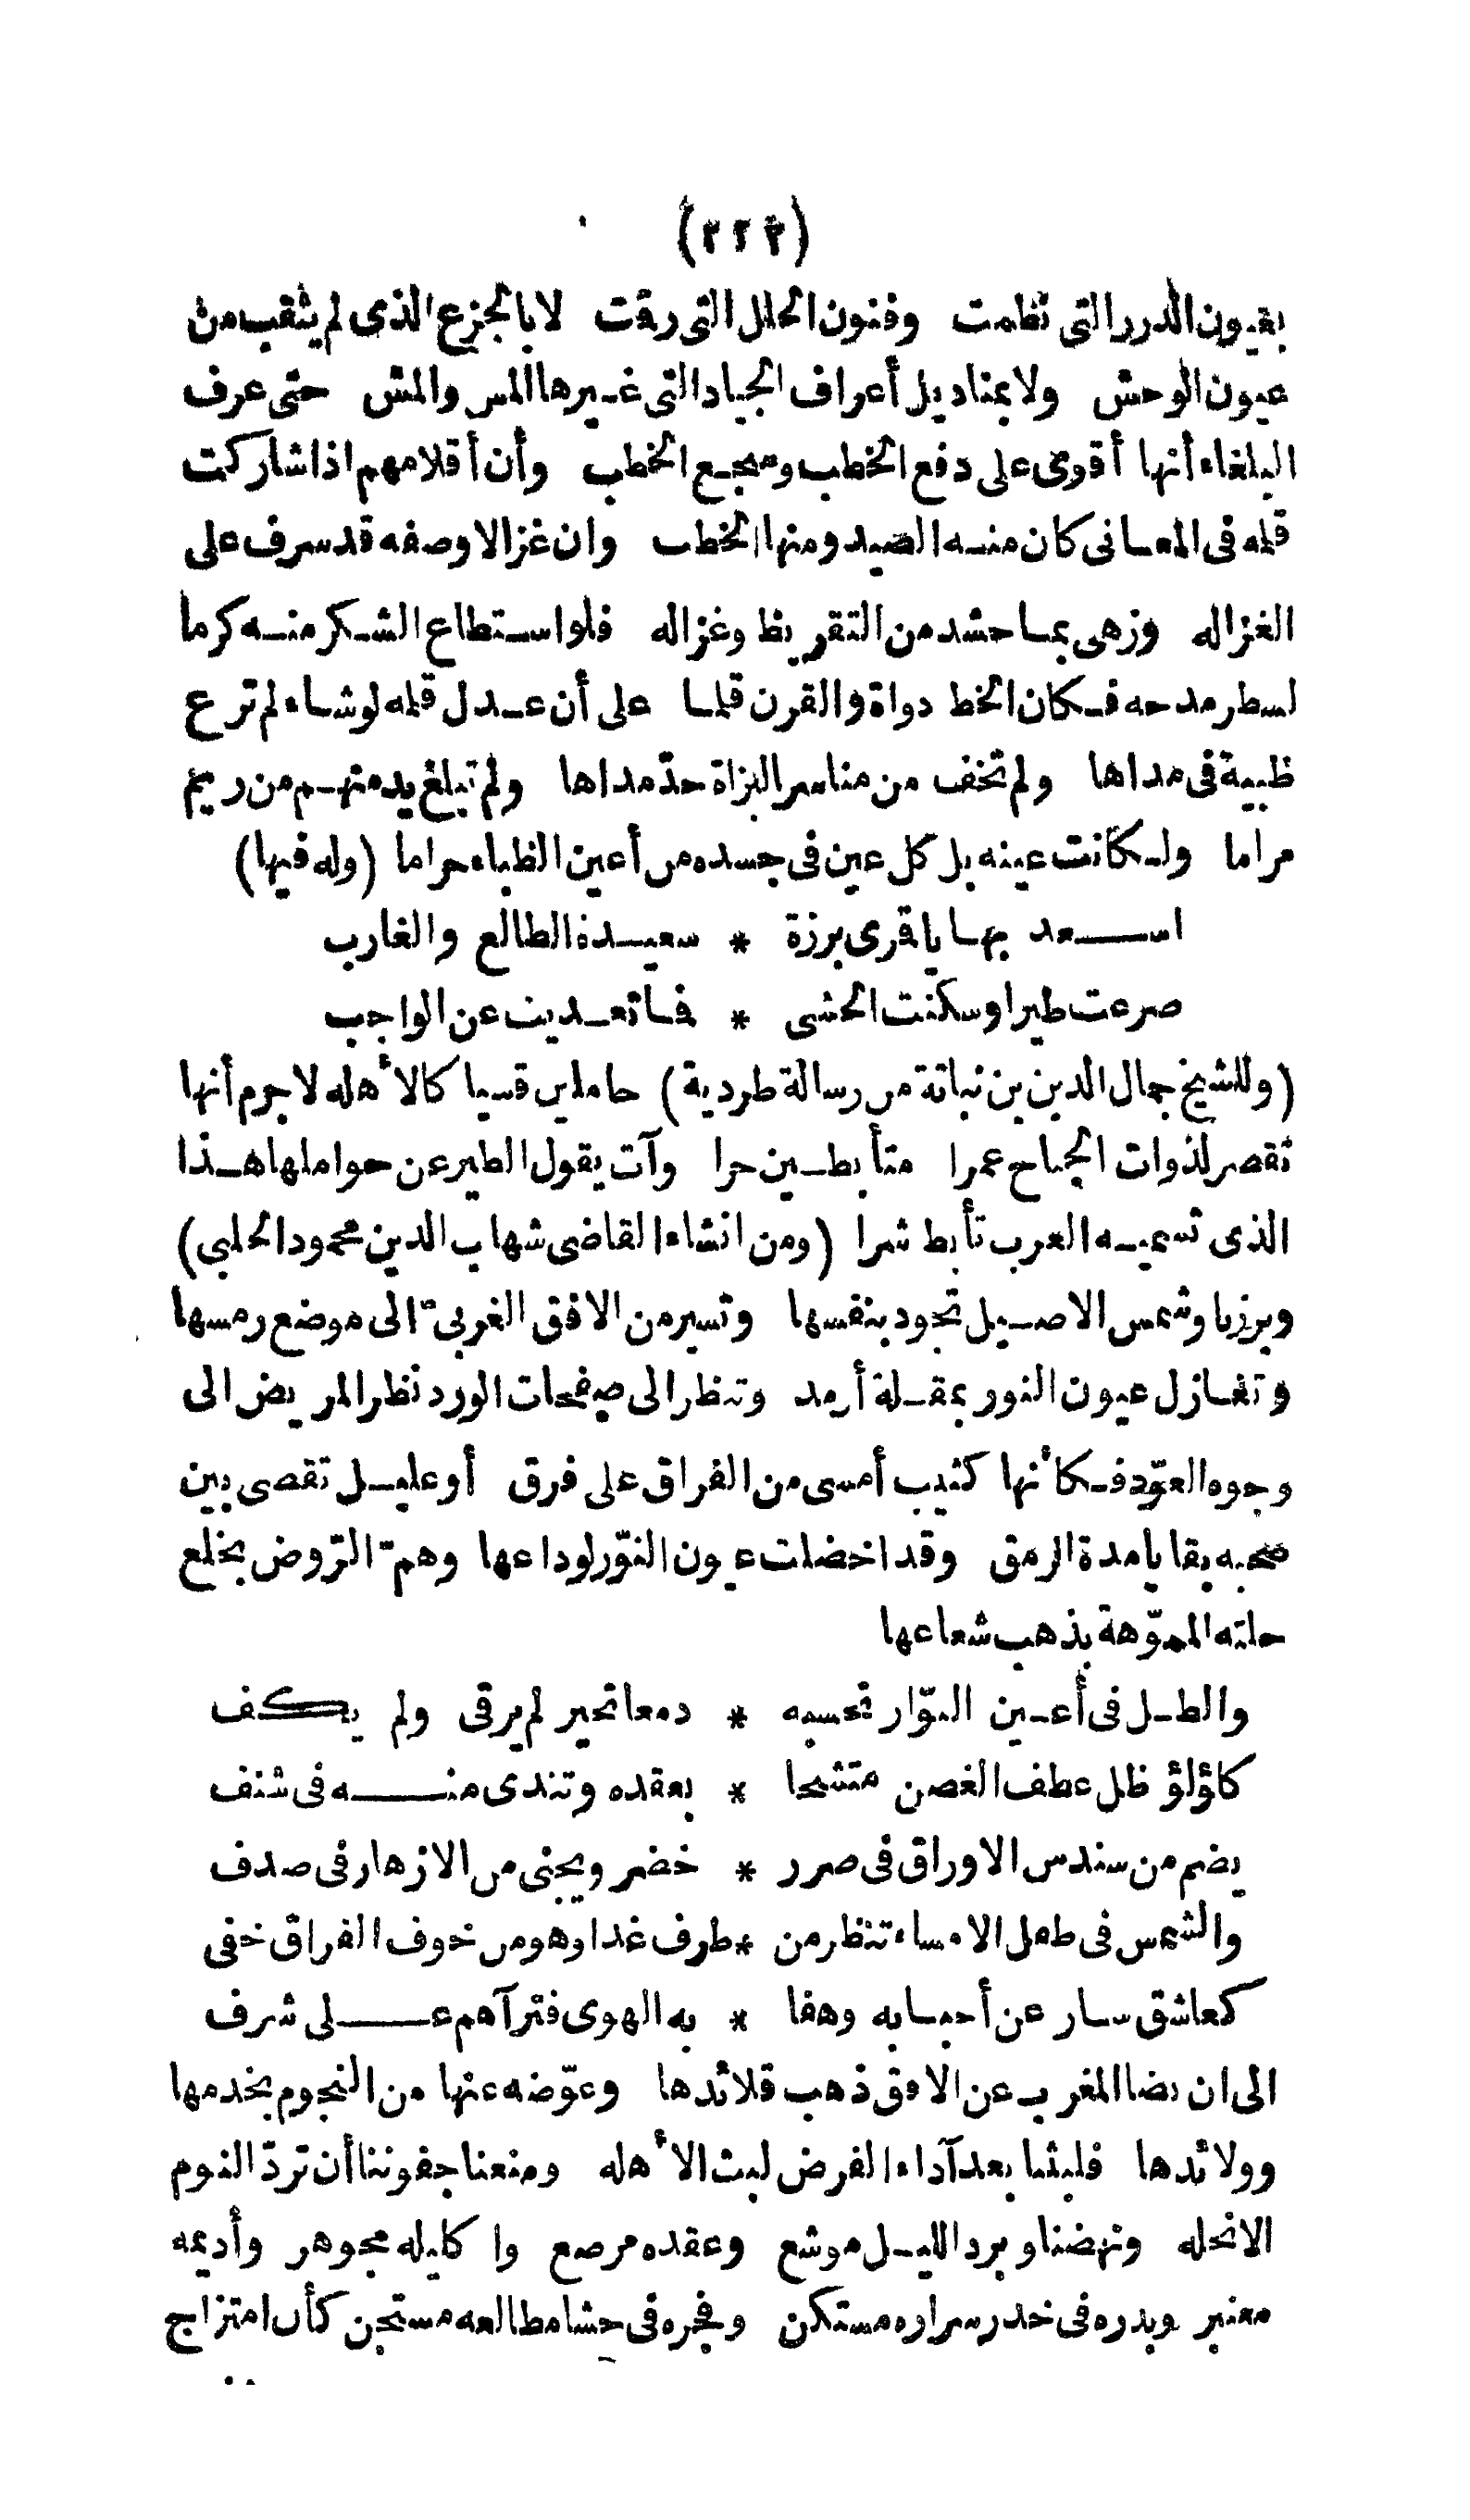 (٢٢٣)
بغيون الدرر التى نظمت وفنون الحلل التى رقت لا بالجزع الذى لم يثقب من
عيون الوحش ولا بمناديل أعراف الجياد التى غيرها المس والمش حتى عرف
البلغاء أنها أقوى على دفع الخطب ومجمع الخطب وأن أقلامهم اذا شاركت
قلمه فى المعانى كان منه الصيد ومنها الخطب وان غزالا وصفه قد سرف على
الغزاله وزهى بما حشد من التقريظ وغزاله فلو استطاع الشكر منه كرما
لسطر مدحه فكان الخط دواة والقرن قلما على أن عدل قلمه لو شاء لم ترع
ظبية فى مداها ولم تخف من مناسر البزاة حدّ مداها ولم تبلغ يد منهم من ريم
مراما ولكانت عينه بل كل عين فى جسده من أعين الظباء حراما (وله فيها)
اسعد بها يا قرى برزة * سعيدة الطالع والغارب
صرعت طيرا وسكنت الحشى * فما تعديت عن الواجب
(وللشيخ جمال الدين بن نباتة من رسالة طردية) حاملين قسيا كالأهله لا جرم أنها
تقصر لذوات الجناح عمرا متأبطين حرا وآت يقول الطير عن حواملها هذا
الذى تسميه العرب تأبط شرا (ومن انشاء القاضى شهاب الدين محمود الحلبى)
وبرزنا وشمس الاصيل تجود بنفسها وتسير من الافق الغربىّ الى موضع رمسها
وتغازل عيون النور بمقلة أرمد وتنظر الى صفحات الورد نظر المريض الى
وجوه العوّد فكأنها كئيب أمسى من الفراق على فرق أو عليل تقضى بين
صحبه بقايا مدة الرمق وقد اخضلت عيون النوّر لوداعها وهمّ الرّوض بخلع
حلته المموّهة بذهب شعاعها
والطل فى أعين النوّار تحسبه * دمعا تحير لم يرقى ولم يكف
كلؤلؤ ظل عطف الغصن متشحا * بعقده وتندى منه فى شنف
يضم من سندس الاوراق فى صرر * خضر ويجنى من الازهار فى صدف
والشمس فى طفل الامساء تنظر من * طرف غدا وهو من خوف الفراق خفى
كعاشق سار عن أحبابه وهفا * به الهوى فترآهم على شرف
الى ان نضا المغرب عن الافق ذهب قلائدها وعوّضه عنها من النجوم بخدمها
وولائدها فلبثنا بعد آداء الفرض لبث الأهله ومنعنا جفوننا أن تردّ النوم
الا تحله ونهضنا وبرد الليل موشع وعقده مرصع واكليله مجوهر وأديمه
معنبر وبدره فى خدر سراره مستكن وفجره فى حشا مطالعه مستجن كأن امتزاج